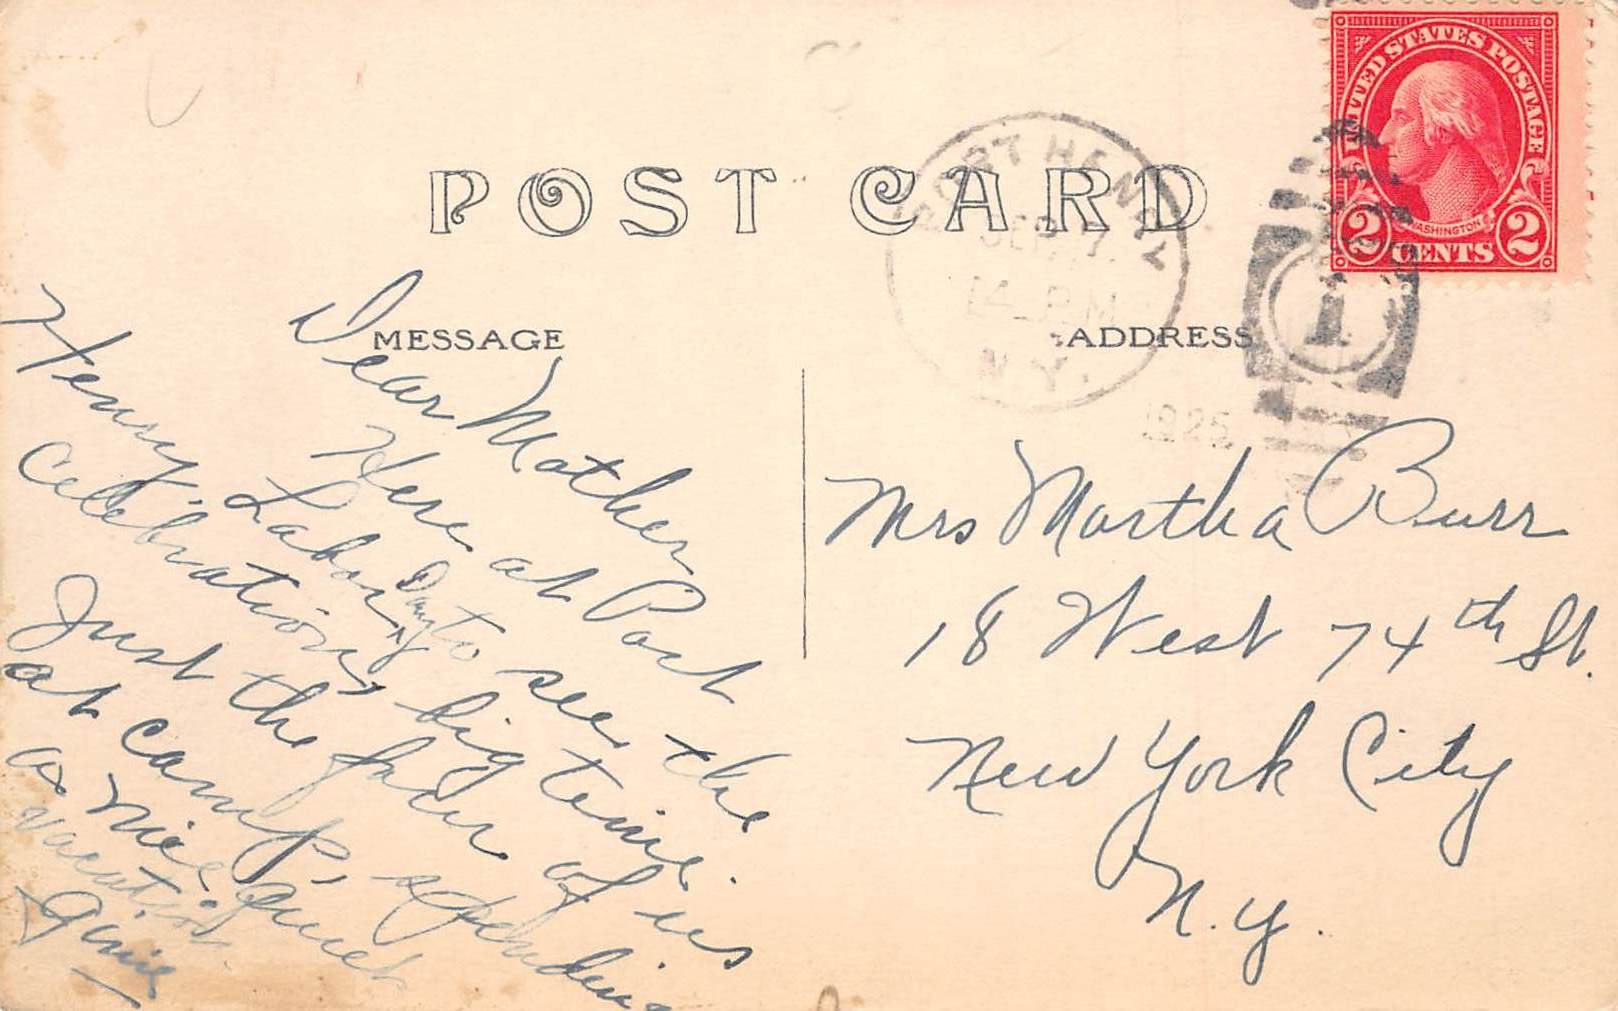 UNITED STATES POSTAGE
WASHINGTON
2 CENTS 2
POST CARD
PORT HENRY
SEP 7
4 PM
N.Y.
1925
1
MESSAGE
ADDRESS
Dear Mother
Here at Port
Henry, Labor Day to see the
Celebration, big time.
Just the four of us
at camp, spending
a nice quiet
vacation.
Mrs Martha Burr
18 West 74th St.
New York City
N.Y.